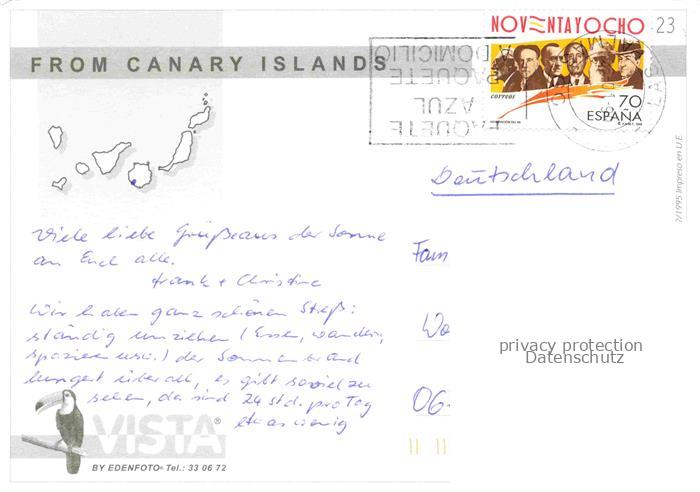 NOVENTAYOCHO
23
FROM CANARY ISLANDS
PAQUETE
AZUL
PAQUETE
A DOMICILIO
CORREOS
70
ESPAÑA
LAS
Deutschland
7/1995 Impreso en U.E.
Viele liebe Grüße aus der Sonne
an Euch alle.
Frank + Christine
Wir haben ganz schönen Streß:
ständig umziehen (Essen, wandern,
spazieren usw.) der Sonnenbrand
lungert überall, es gibt soviel zu
sehen, da sind 24 Std. pro Tag
etwas wenig
Fam
Wo
06
privacy protection
Datenschutz
VISTA®
BY EDENFOTO® Tel.: 33 06 72